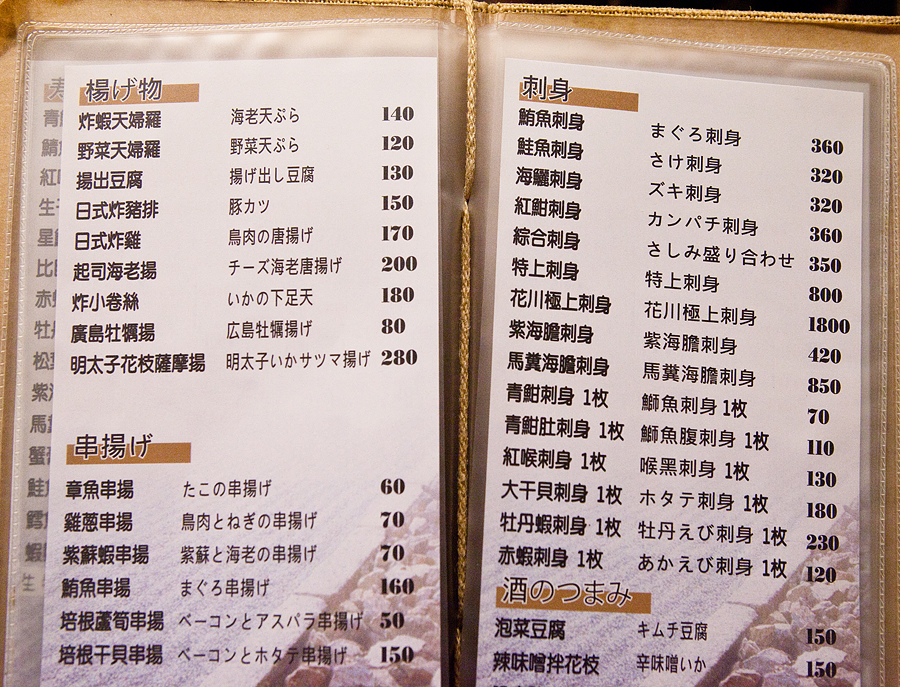 揚げ物
炸蝦天婦羅 海老天ぷら 140
野菜天婦羅 野菜天ぷら 120
揚出豆腐 揚げ出し豆腐 130
日式炸豬排 豚カツ 150
日式炸雞 鳥肉の唐揚げ 170
起司海老揚 チーズ海老唐揚げ 200
炸小卷絲 いかの下足天 180
廣島牡蠣揚 広島牡蠣揚げ 80
明太子花枝薩摩揚 明太子いかサツマ揚げ 280
串揚げ
章魚串揚 たこの串揚げ 60
雞蔥串揚 鳥肉とねぎの串揚げ 70
紫蘇蝦串揚 紫蘇と海老の串揚げ 70
鮪魚串揚 まぐろ串揚げ 160
培根蘆筍串揚 ベーコンとアスパラ串揚げ 50
培根干貝串揚 ベーコンとホタテ串揚げ 150
刺身
鮪魚刺身 まぐろ刺身 360
鮭魚刺身 さけ刺身 320
海鱺刺身 ズキ刺身 320
紅魽刺身 カンパチ刺身 360
綜合刺身 さしみ盛り合わせ 350
特上刺身 特上刺身 800
花川極上刺身 花川極上刺身 1800
紫海膽刺身 紫海膽刺身 420
馬糞海膽刺身 馬糞海膽刺身 850
青魽刺身 1枚 鰤魚刺身 1枚 70
青魽肚刺身 1枚 鰤魚腹刺身 1枚 110
紅喉刺身 1枚 喉黑刺身 1枚 130
大干貝刺身 1枚 ホタテ刺身 1枚 180
牡丹蝦刺身 1枚 牡丹えび刺身 1枚 230
赤蝦刺身 1枚 あかえび刺身 1枚 120
酒のつまみ
泡菜豆腐 キムチ豆腐 150
辣味噌拌花枝 辛味噌いか 150